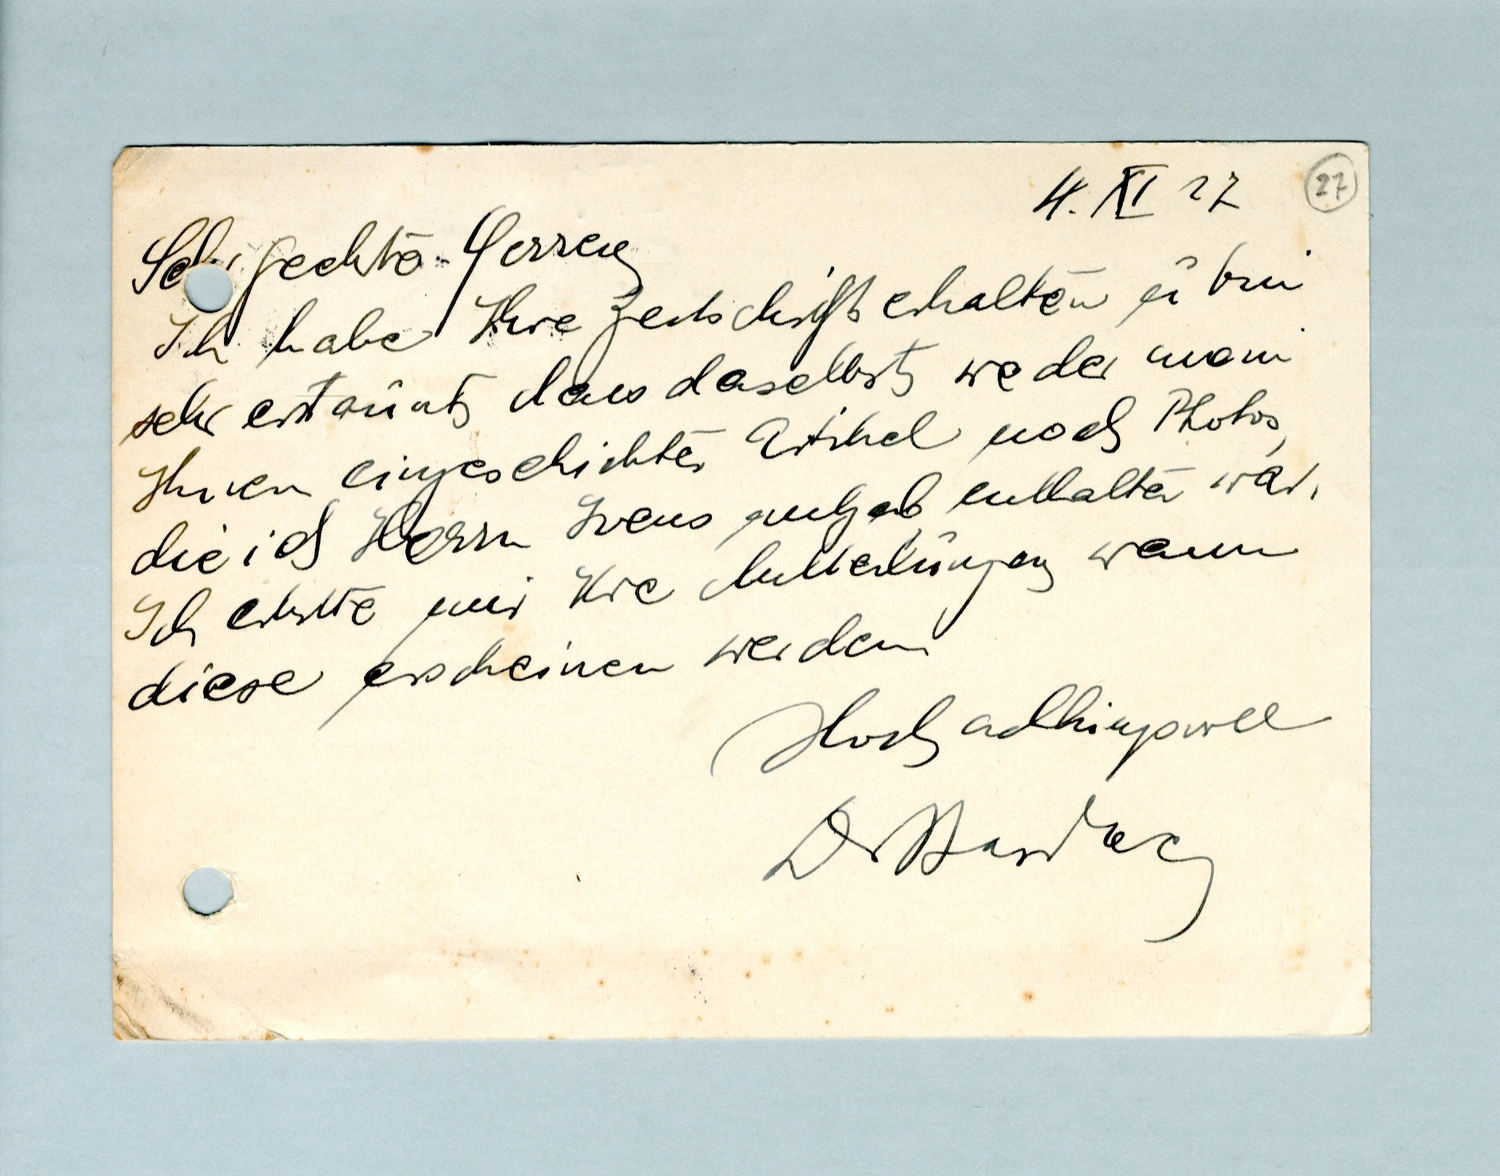 4. XI 27
27
Sehr geehrte Herren
Ich habe Ihre Zeitschrift erhalten u bin
sehr erstaunt dass daselbst weder mein
Ihnen eingeschickter Artikel noch Photos,
die ich Herrn Ivens mitgab enthalten war.
Ich erbitte mir Ihre Mitteilungen wann
diese erscheinen werden
Hochachtungsvoll
Dr